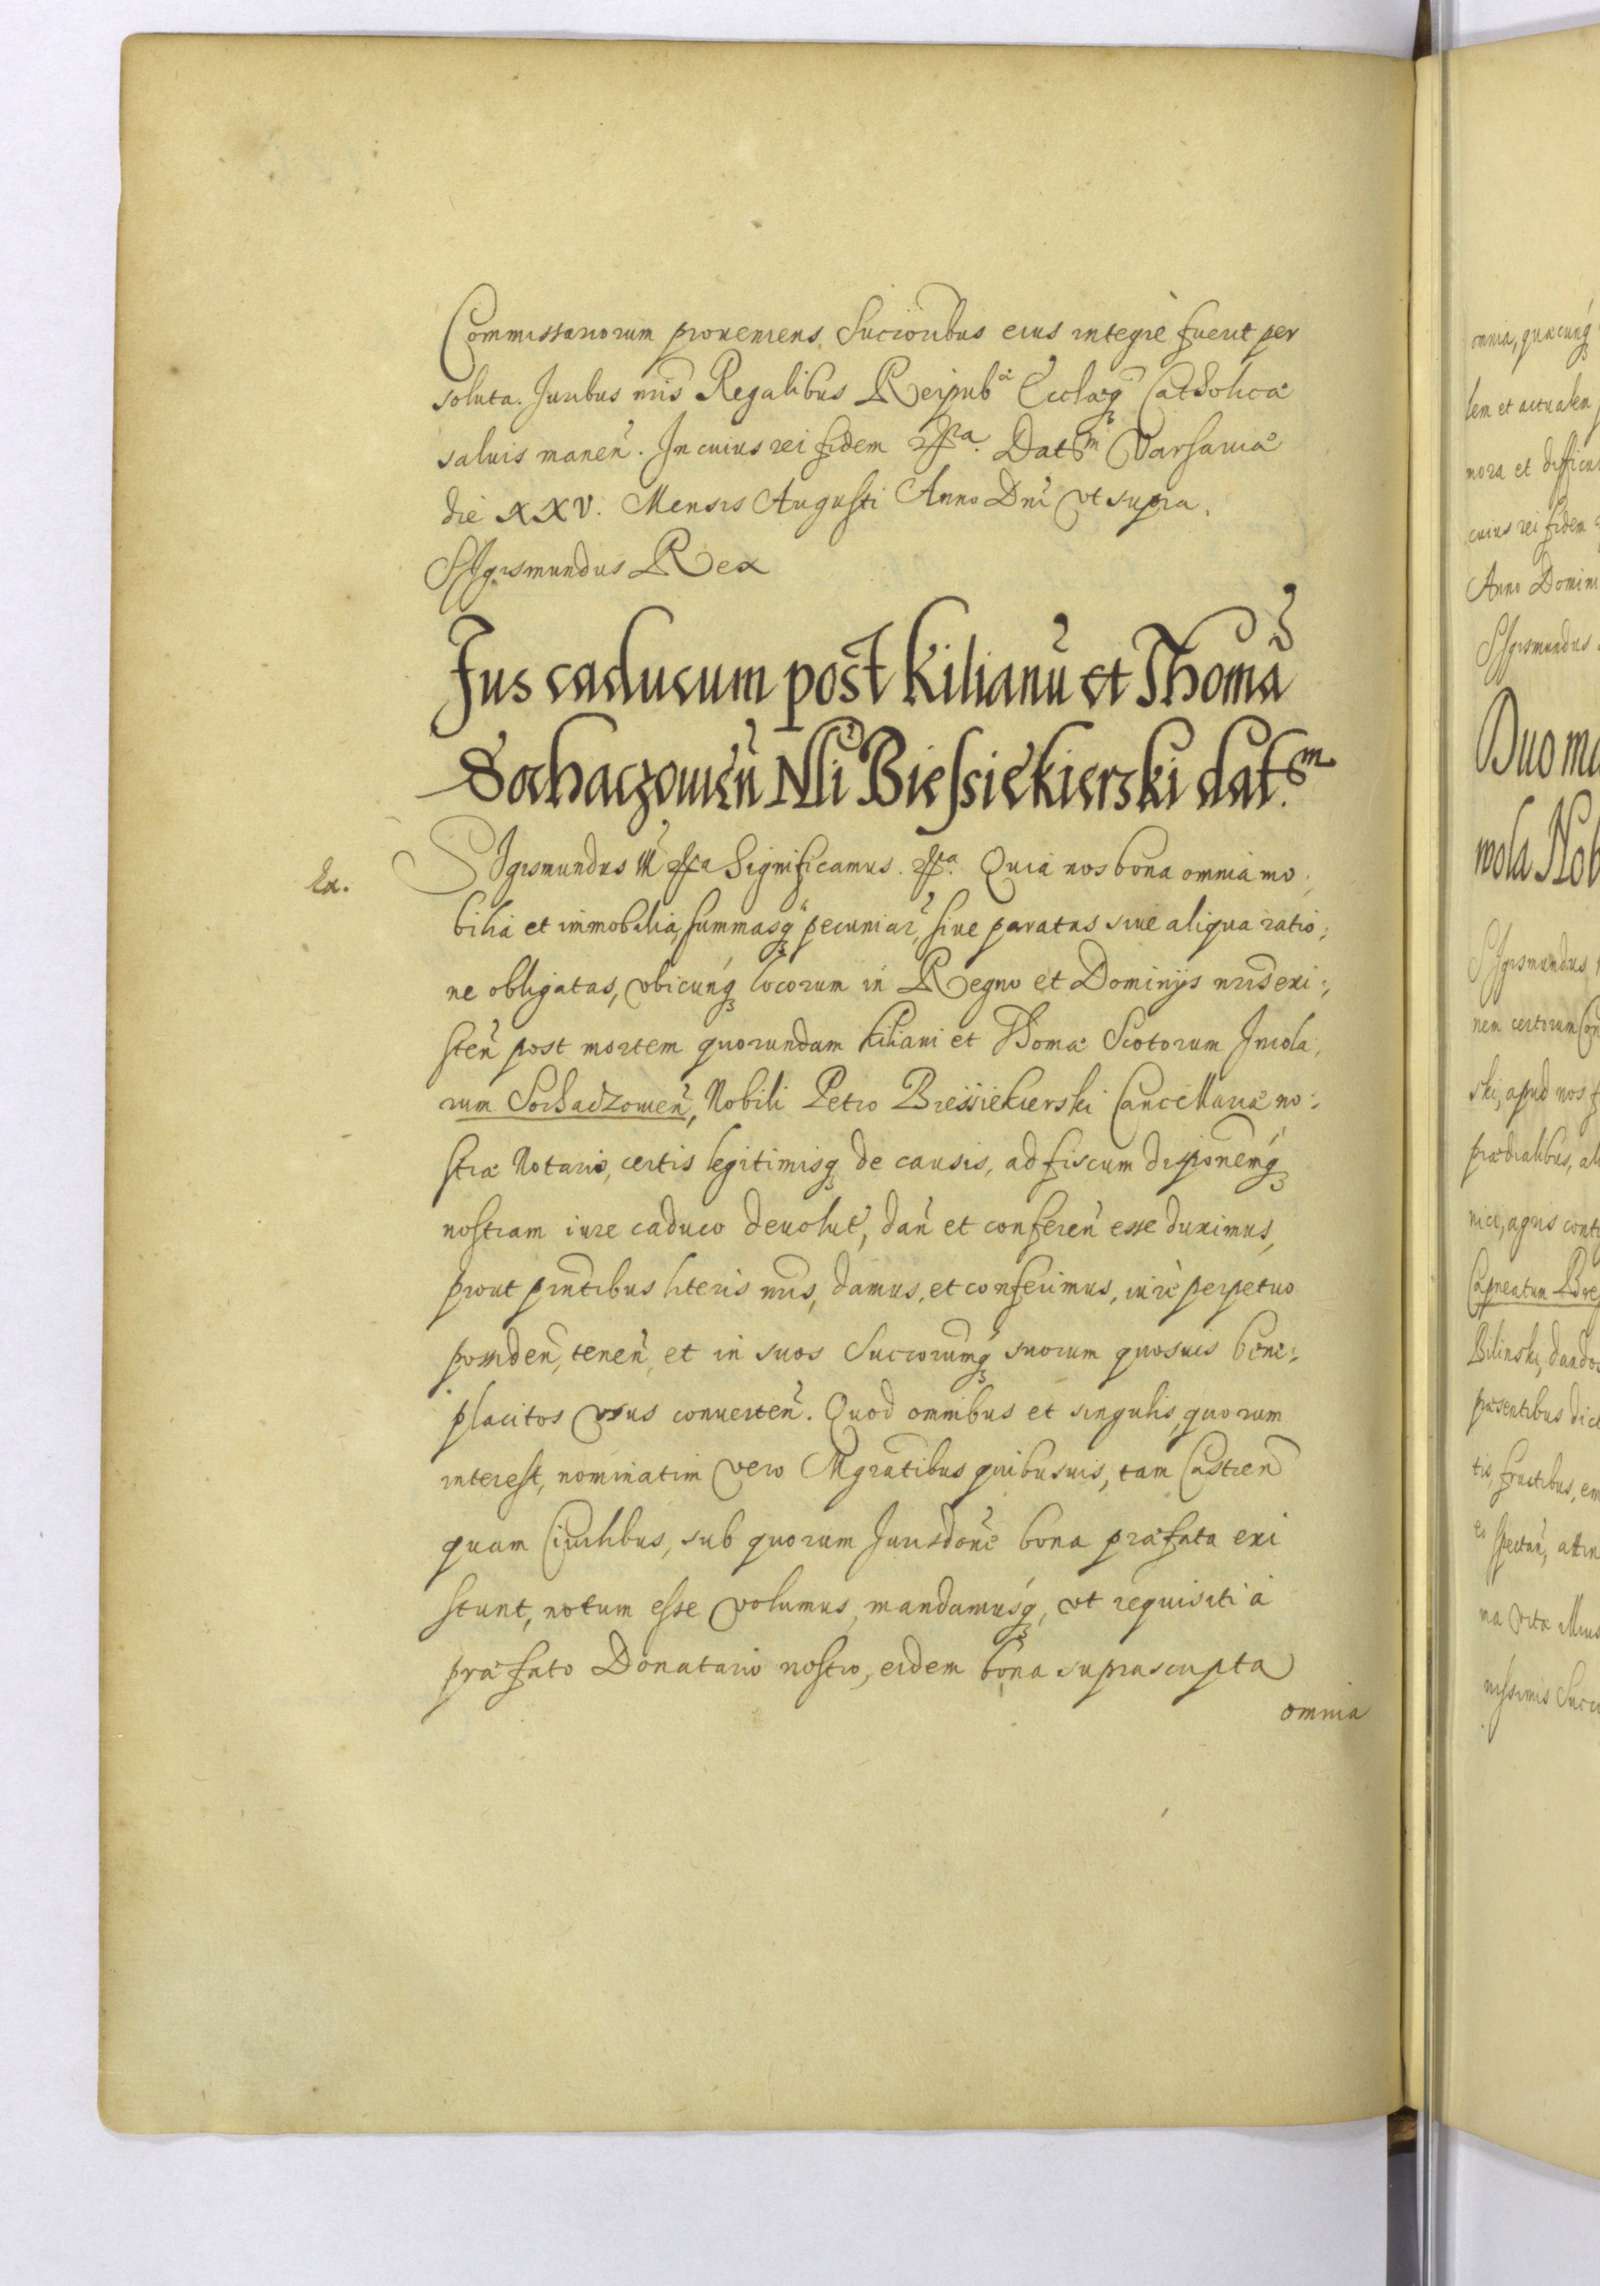 Commissariorum proueniens, Succoribus eius integre fuerit per
soluta. Juribus nris Regalibus Reipub Eccláeq Catholicæ
saluis manen. In cuius rei fidem etca. Datum Varsauiæ
die XXV. Mensis Augusti Anno Dni vt supra.
SIgismundus Rex
Jus caducum post Kilianu et Thoma
Sochaczouien Nli Biessiekierski datum
Ex.
SIgismundus III etca Significamus. etca. Quia nos bona omnia mo
bilia et immobilia, summasq pecuniar, siue paratas siue aliqua ratio;
ne obligatas, vbicunq locorum in Regno et Dominijs nris exi:
sten post mortem quorundam Kiliani et Thomæ Scotorum Incola,
rum Sochadzouien, Nobili Petro Biessiekierski Cancellariæ no:
stræ Notario, certis legitimisq de causis, ad fiscum disponemq
nostram iure caduco deuolut, dan et conferen esse duximus,
prout pntibus literis nris, damus, et conferimus, iure perpetuo
possiden, tenen, et in suos Succorumq suorum quosuis bene:
placitos vsus conuerten. Quod omnibus et singulis, quorum
interest, nominatim vero Mgratibus quibusuis, tam Castren
quam Ciuilibus, sub quorum Jurisdone bona præfata exi
stunt, notum esse volumus, mandamusq, vt requisiti a
præfato Donatario nostro, eidem bona suprascripta
omnia
omnia, quæcunq
lem et actualem
mora et difficul
cuius rei fidem
Anno Domini
SIgismundus
Duo ma
wola Nob
SIgismundus
nem certorum Con
ski, apud nos
prædialibus, al
nici, agris cont
Bilinski, dandos
præsentibus dict
tis, fructibus, em